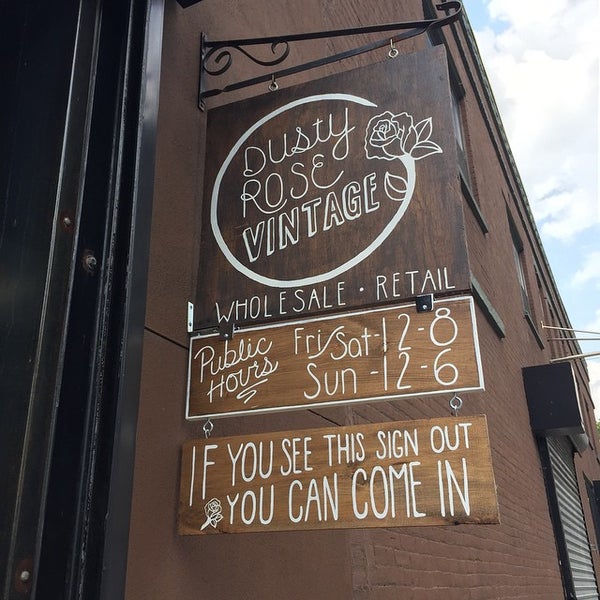 Dusty
ROSE
VINTAGE
WHOLESALE · RETAIL
Public Hours
Fri/Sat-12-8
Sun-12-6
IF YOU SEE THIS SIGN OUT
YOU CAN COME IN